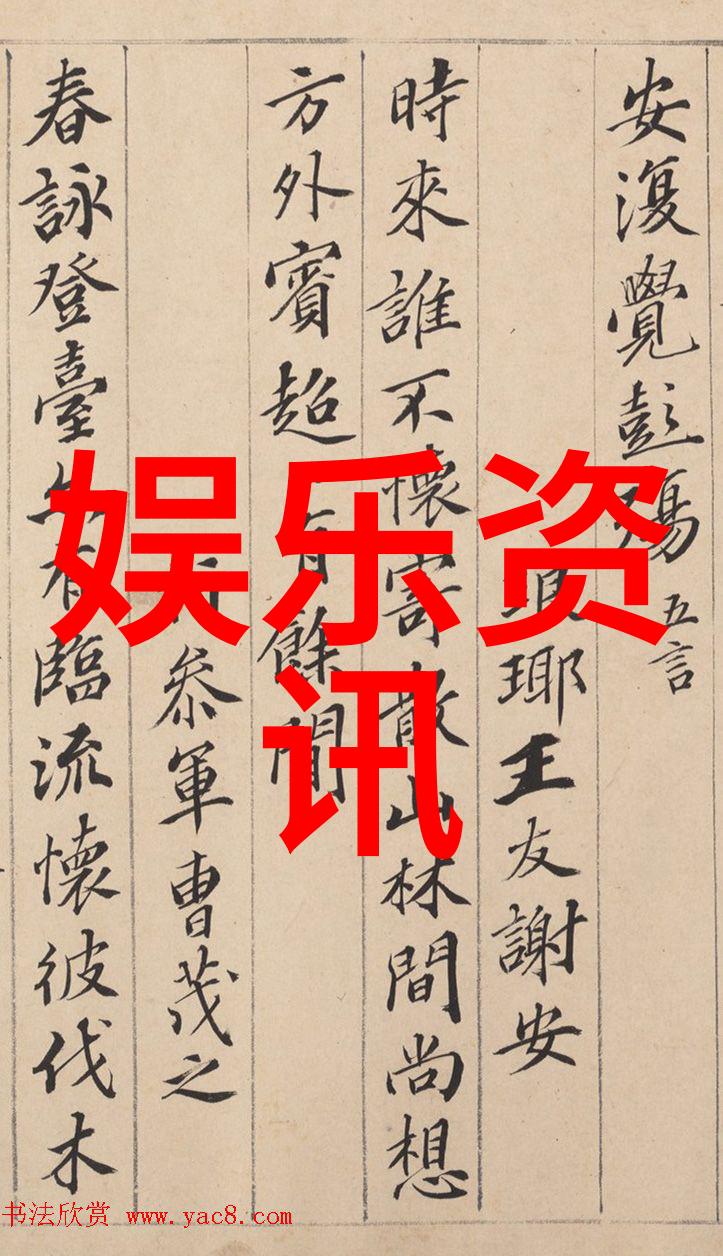 安復覺彭殤 五言
瑘王友謝安
時來誰不懷寄散山林間尚想
方外賓超有餘閒
行参軍曹茂之
春詠登臺亦有臨流懷彼伐木
娱乐资
讯
书法欣赏 www.yac8.com